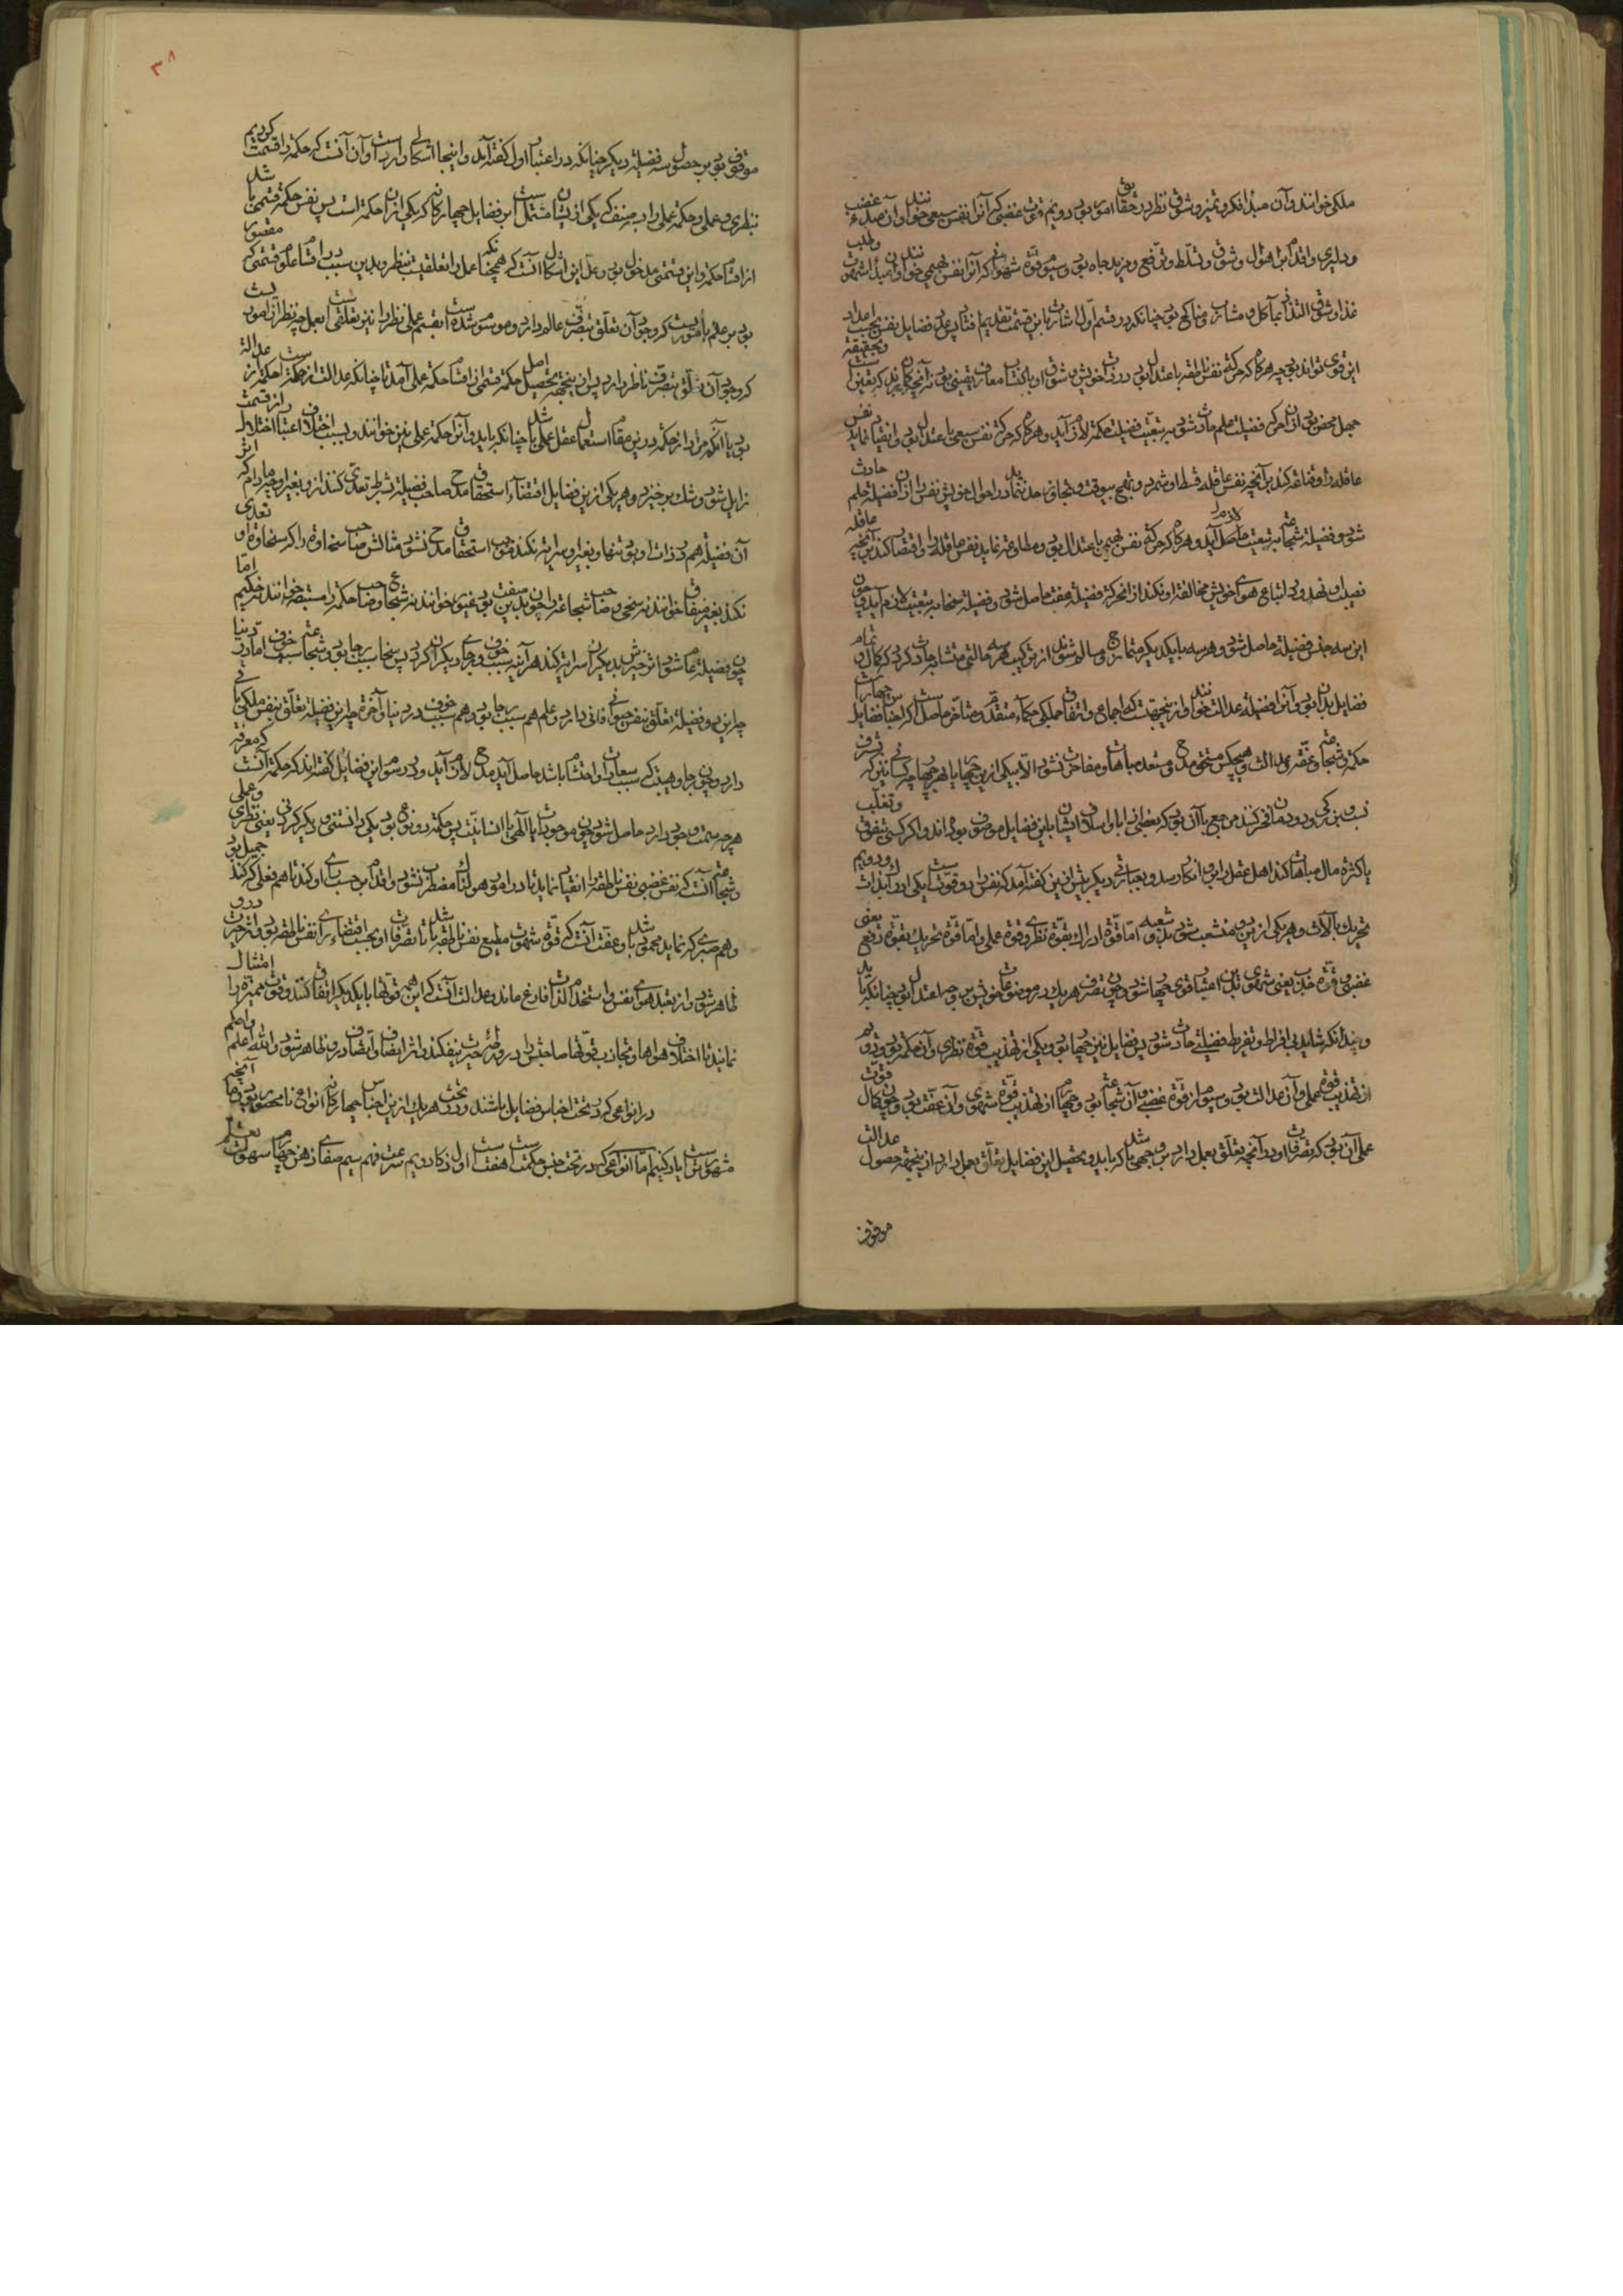 ملکی خوانند و آن مبدأ فکر و تمیز و شوق نظر در حقایق امور بود دویم قوت غضبی که آنرا نفس سبعی خوانند و آن مبدء غضب
و دلیری و اقدام بر اهوال و شوق و تسلط و ترفع و مزید جاه بود و سیوم قوة شهوانی که آنرا نفس بهیمی خوانند و آن مبدأ شهوت و طلب
غذا و شوق التذاذ بمآکل و مشارب و مناکح بود چنانکه در قسم اول اشارتی باین قسمت تقدیم افتاد پس عدد فضایل نفس بحسب اعداد
این قوی تواند بود چه هرگاه که حرکة نفس ناطقه باعتدال بود در ذات خویش و شوق او باکتساب معارف یقینی بود نه آنچه گمان برند که یقینی است و بحقیقة
جهل محض بود از آن حرکه فضیلت علم حادث شود و بتبعیت فضیلت حکمة لازم آید و هرگاه که حرکة نفس سبعی باعتدال بود و انقیاد نماید نفس
عاقله را و قناعة کند بر آنچه نفس عاقله قسط او شمرد و تهیج بیوقت و تجاوز حد ننماید در احوال خویش نفس را از آن فضیلة حلم حادث
شود و فضیلة شجاعة بتبعیت لازم آید و هرگاه که حرکة نفس بهیمی باعتدال بود و مطاوعة نماید نفس عاقله را و اقتصار کند بر آنچه عاقله
نصیب او نهد و در اتباع هوای خویش مخالفة او نکند از آن حرکة فضیلة عفت حاصل شود و فضیلة سخا بتبعیت لازم آید و چون
این سه جنس فضیلة حاصل شود و هر سه با یکدیگر متمازج و متسالم شوند از ترکیب هر سه حالتی متشابه حادث گردد که کمال و تمام
فضایل بدان بود و آنرا فضیلة عدالت خوانند و از ینجهتست که اجماع و اتفاق جملگی حکماء متقدم و متأخر حاصل است که اجناس فضایل چهار است
حکمة و شجاعة و عفة و عدالت و هیچکس مستحق مدح و مستعد مباهات و مفاخرت نشود الا بیکی ازین چهار یا بهر چهار چه کسانی نیز که بشرف
نسب و بزرگی دودمان فخر کنند مرجع با آن بود که بعضی از آبا و اسلاف ایشان باین فضایل موصوف بوده‌اند و اگر کسی بتفوق و تغلب
یا کثرة مال مباهات کند اهل عقل را برو انکار رسد و بعبارتی دیگر پیش ازین گفته آمد که نفس را دو قوتست یکی ادراک بذات و دویم
تحریک بآلات و هر یکی ازین دو منشعب شود بدو شعبه اما قوة ادراک بقوة نظری و قوة عملی و اما قوة تحریک بقوة دفع یعنی
غضبی و قوة جذب یعنی شهوی پس بدین اعتبار قوی چهار شود و چون تصرف هر یک در موضوعات خویش بر وجه اعتدال بود چنانکه باید
و چندانکه شاید بی افراط و تفریط فضیلتی حادث شود پس فضایل نیز چهار بود یکی از تهذیب قوة نظری و آن حکمة بود و دویم
از تهذیب قوة عملی و آن عدالت بود و سیوم از قوة غضبی و آن شجاعة بود و چهارم از تهذیب قوة شهوی و آن عفت بود و چون کمال قوت
عملی آن بود که تصرفات او در آنچه تعلق بعمل دارد بر وجهی باشد که باید و تحصیل این فضایل تعلق بعمل دارد از ینجهة حصول عدالت
موقوف
۳۸
موقوف بود بر حصول سه فضیلة دیگر چنانکه در اعتبار اول گفته آید و اینجا اشکالی وارد است و آن آنست که حکمة را قسمت کردیم
بنظری و عملی و حکمة عملی را بسه صنف که یکی از یشان مشتمل است بر فضایل چهارگانه که یکی از آن حکمة است پس نفس حکمة قسمی باشد
از اقسام حکمة و این قسمتی مدخول بود و حل این اشکال آنست که همچنانکه عمل را تعلقیست بنظر و بدین سبب در اقسام علوم قسمتی که مقصور
بود بر علم بأموریست که وجود آن تعلق بتصرف عالم دارد و موسوم شده است بقسم عملی نظر را نیز تعلقی است بعمل چه نظر از اموریست
که وجود آن تعلق بتصرف ناظر دارد پس از ینجهة تحصیل اصل حکمة قسمی از اقسام حکمة عملی آمد تا چنانکه عدالت از حکمة است حکمة از عدالة
بود یا آنکه مراد از حکمة درین مقام استعمال عقل عملی باشد چنانکه باید و آنرا حکمة عملی نیز خوانند و بسبب اختلاف اعتبار اختلال از قسمت
زایل شود و شک برخیزد و هر یکی ازین فضایل اقتضاء استحقاق مدح صاحب فضیلة بشرط تعدی کند ازو بغیر او چه مادام که اثر
آن فضیلة هم در ذات او بود تنها و بغیر او سرایة نکند موجب استحقاق مدح نشود مثالش صاحب سخاوة را که سخاوة او تعدی
نکند بغیر منفاق خوانند نه سخی و صاحب شجاعة را چون بدین صفت بود غیور خوانند نه شجاع و صاحب حکمة را مستبصر خوانند نه حکیم اما
چون فضیلة عام شود و اثر خیرش بدیگران سرایة کند هر آینه سبب خوف و رجای دیگران گردد پس سخا سبب رجا بود و شجاعة سبب خوف اما در دنیا
چه این دو فضیلة تعلق بنفس حیوانی فانی دارد و علم هم سبب رجا بود و هم سبب خوف در دنیا و آخرة چه این فضیلة تعلق بنفس ملکی باقی
دارد و چون رجا و هیبت که سبب سعادت و احتشام باشد حاصل آید مدح لازم آید و در رسوم این فضایل گفته‌اند که حکمة آنست که معرفة
هر چه سمت وجود دارد حاصل شود و چون موجودات یا الهی یا انسانیست پس حکمة دو نوع بود یکی دانستنی و دیگر کردنی یعنی نظری و عملی
و شجاعة آنست که نفس غضبی نفس ناطقه را انقیاد نماید تا در امور هولناک مضطرب نشود و اقدام بر حسب رای او کند تا هم فعلی که کند جمیل بود
و هم صبری که نماید محمود باشد و عفت آنست که قوة شهوت مطیع نفس ناطقه باشد تا تصرفات او بحسب اقتضاء رای نفس ناطقه بود و اثر حریت درو
ظاهر شود و از تعبد هوای نفس و استخدام لذات فارغ ماند و عدالت آنست که این همه قوتها با یکدیگر اتفاق کنند و قوت ممیزه را امتثال
نمایند تا اختلاف هواها و تجاذب قوتها صاحبش را در ورطهٔ حیرت نیفکند و اثر انصاف و انتصاف درو ظاهر شود و الله اعلم و احکم
در انواعی که در تحت اجناس فضایل باشند و در تحت هر یک ازین اجناس چهارگانه انواع نامحصور بود و ما آنچه
مشهورتر است یاد کنیم اما انواعی که در تحت جنس حکمتست هفت است اول ذکا دویم سرعت فهم سیم صفای ذهن چهارم سهولت تعلم